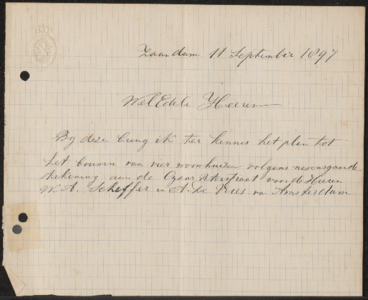 Zaandam 11 September 1897
WelEdele Heeren
By deze breng ik ter kennis het plan tot
het bouwen van vier woonhuizen volgens nevensgaande
tekening aan de Czaar Peterstraat voor de Heeren
W. A. Scheffer en A. de Vries van Amsterdam